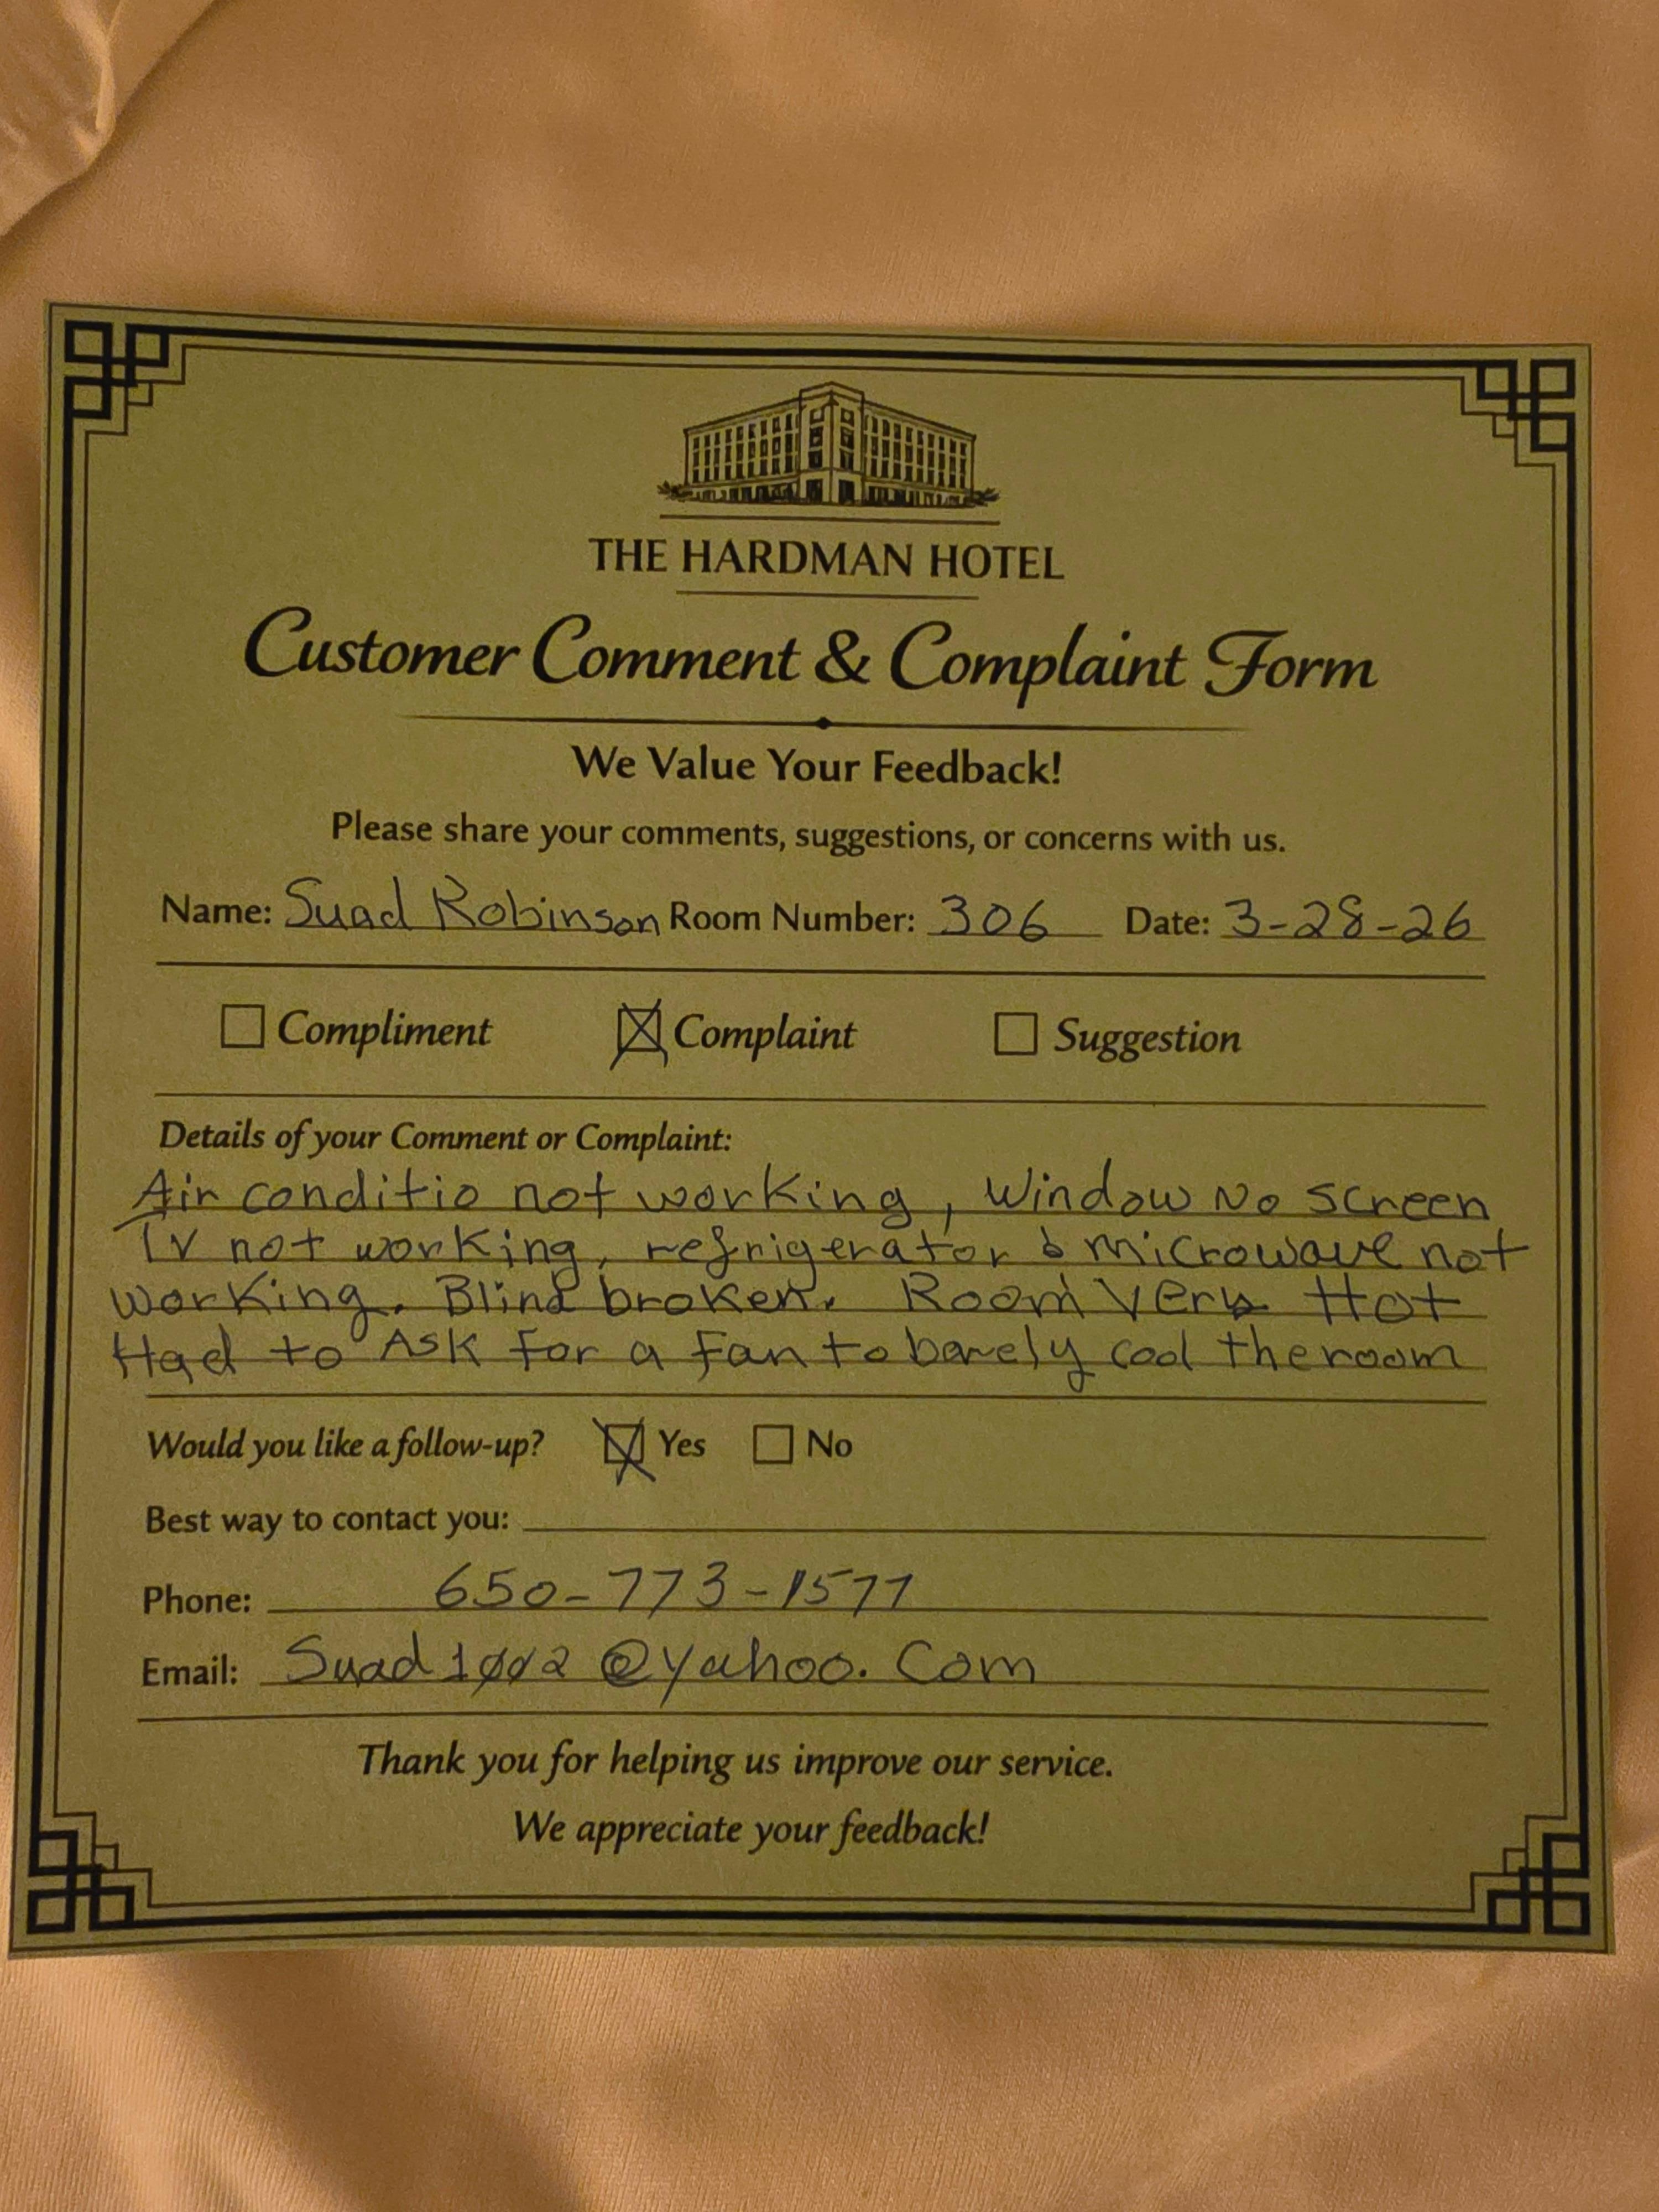 THE HARDMAN HOTEL
Customer Comment & Complaint Form
We Value Your Feedback!
Please share your comments, suggestions, or concerns with us.
Name: Suad Robinson Room Number: 306 Date: 3-28-26
Compliment Complaint Suggestion
Details of your Comment or Complaint:
Air conditio not working, Window No screen
TV not working, refrigerator & microwave not
working. Blind broken. Room Very Hot
Had to Ask for a fan to barely cool the room
Would you like a follow-up? Yes No
Best way to contact you:
Phone: 650-773-1577
Email: Suad1002@yahoo.com
Thank you for helping us improve our service.
We appreciate your feedback!